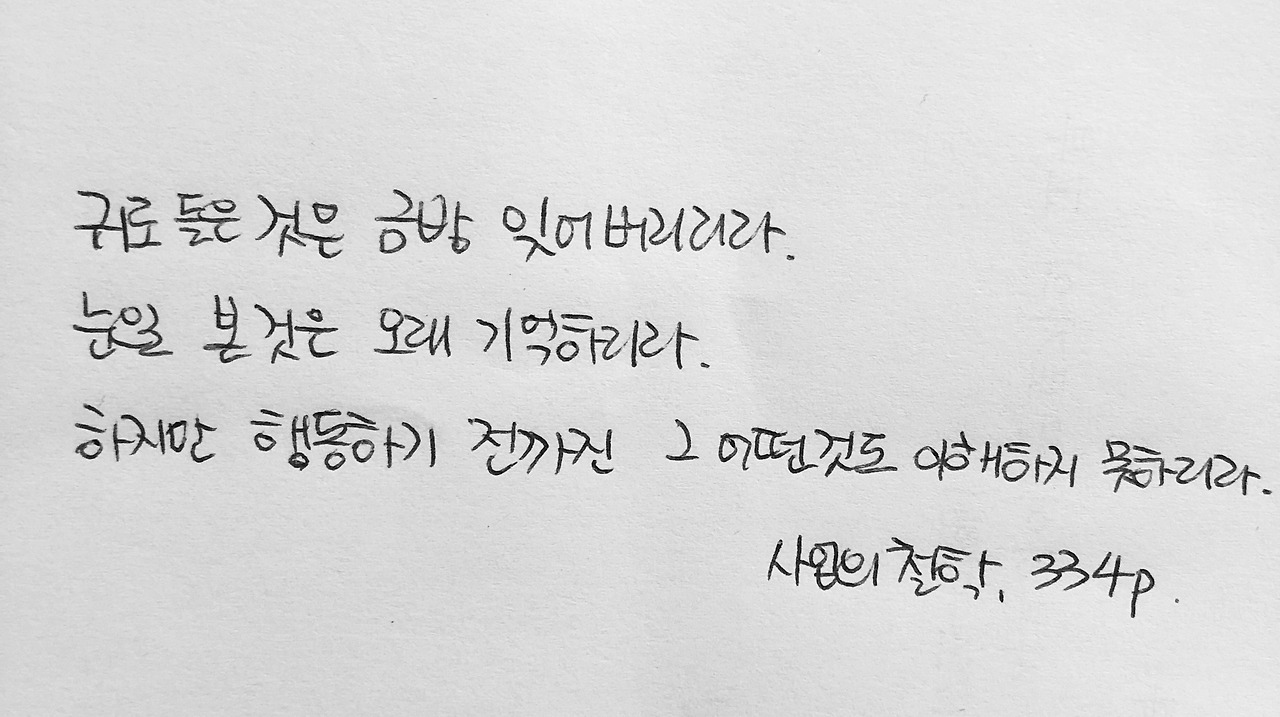 귀로 들은 것은 금방 잊어버리리라.
눈일 본 것은 오래 기억하리라.
하지만 행동하기 전까진 그 어떤것도 이해하지 못하리라.
사업의 철학, 334p.